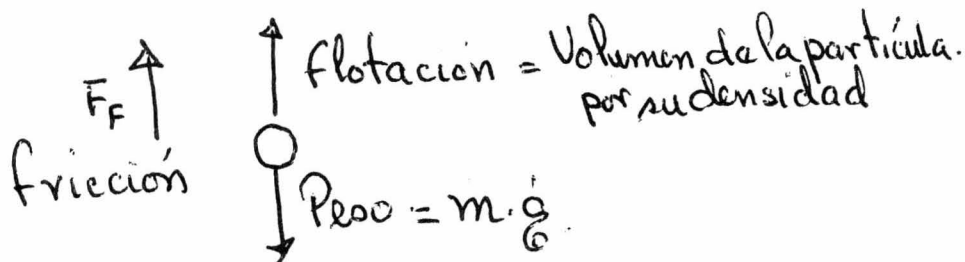 F̄_F
fricción
flotación = Volumen de la partícula.
por su densidad
Peso = m.g.